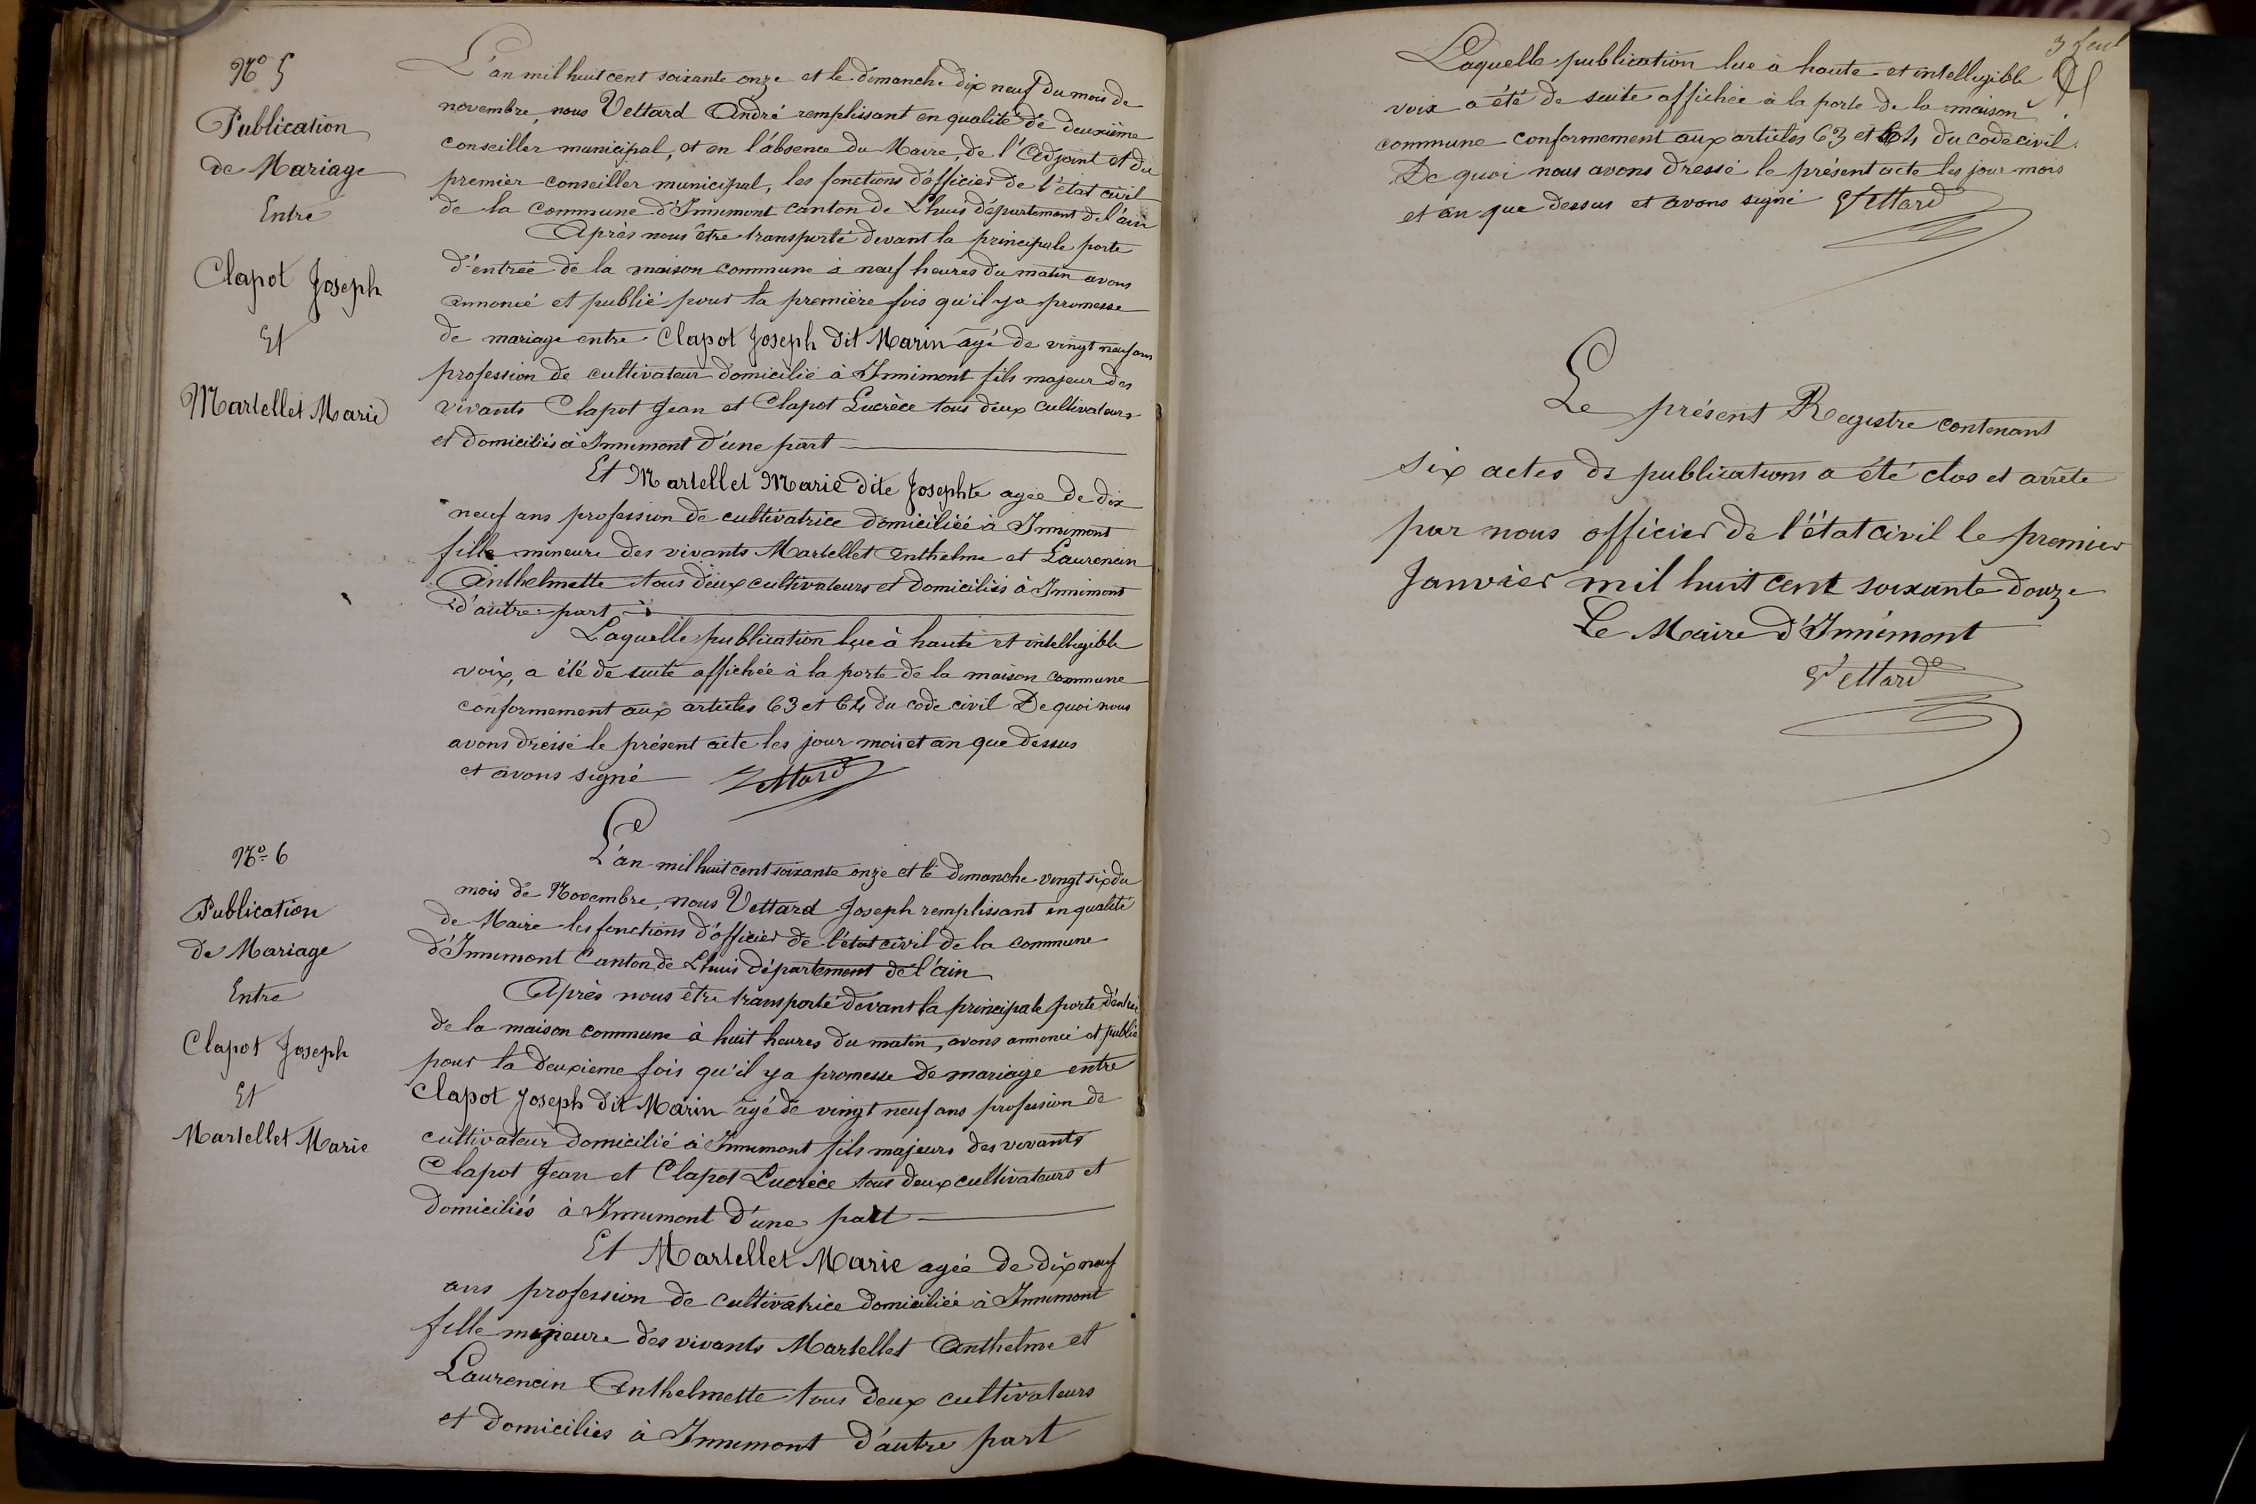 N° 5
Publication
de Mariage
Entre
Clapot Joseph
Et
Martellet Marie
L'an mil huit cent soixante onze et le dimanche dix neuf du mois de
novembre, nous Vettard André remplissant en qualité de deuxième
conseiller municipal, et en l'absence du Maire, de l'Adjoint et du
premier conseiller municipal, les fonctions d'officier de l'état civil
de la Commune d'Innimont canton de Lhuis département de l'ain
Après nous être transporté devant la principale porte
d'entrée de la maison commune à neuf heures du matin avons
annoncé et publié pour la première fois qu'il y a promesse
de mariage entre Clapot Joseph dit Marin âgé de vingt neuf ans
profession de cultivateur domicilié à Innimont fils majeur des
vivants Clapot Jean et Clapot Lucrèce tous deux cultivateurs
et domiciliés à Innimont d'une part
Et Martellet Marie dite Josephte agée de dix
neuf ans profession de cultivatrice domiciliée à Innimont
fille mineure des vivants Martellet Anthelme et Laurencin
Anthelmette tous deux cultivateurs et domiciliés à Innimont
d'autre part
Laquelle publication lue à haute et intelligible
voix, a été de suite affichée à la porte de la maison commune
conformement aux articles 63 et 64 du code civil De quoi nous
avons dressé le présent acte les jour mois et an que dessus
et avons signé Vettard
N° 6
Publication
de Mariage
Entre
Clapot Joseph
Et
Martellet Marie
L'an mil huit cent soixante onze et le dimanche vingt six du
mois de Novembre, nous Vettard Joseph remplissant en qualité
de Maire les fonctions d'officier de l'état civil de la commune
d'Innimont Canton de Lhuis département de l'ain
Après nous être transporté devant la principale porte d'entrée
de la maison commune à huit heures du matin, avons annoncé et publié
pour la deuxieme fois qu'il y a promesse de mariage entre
Clapot Joseph dit Marin âgé de vingt neuf ans profession de
cultivateur domicilié à Innimont fils majeurs des vivants
Clapot Jean et Clapot Lucrèce tous deux cultivateurs et
domiciliés à Innimont d'une part
Et Martellet Marie agée de dix neuf
ans profession de cultivatrice domiciliée à Innimont
fille mineure des vivants Martellet Anthelme et
Laurencin Anthelmette tous deux cultivateurs
et domiciliés à Innimont d'autre part
3 feul
Laquelle publication lue à haute et intelligible
voix a été de suite affichée à la porte de la maison
commune conformement aux articles 63 et 64 du code civil.
De quoi nous avons dressé le présent acte les jour mois
et an que dessus et avons signé Vettard
Le présent Registre contenant
six actes de publications a été clos et arrêté
par nous officier de l'état civil le premier
Janvier mil huit cent soixante douze
Le Maire d'Innimont
Vettard